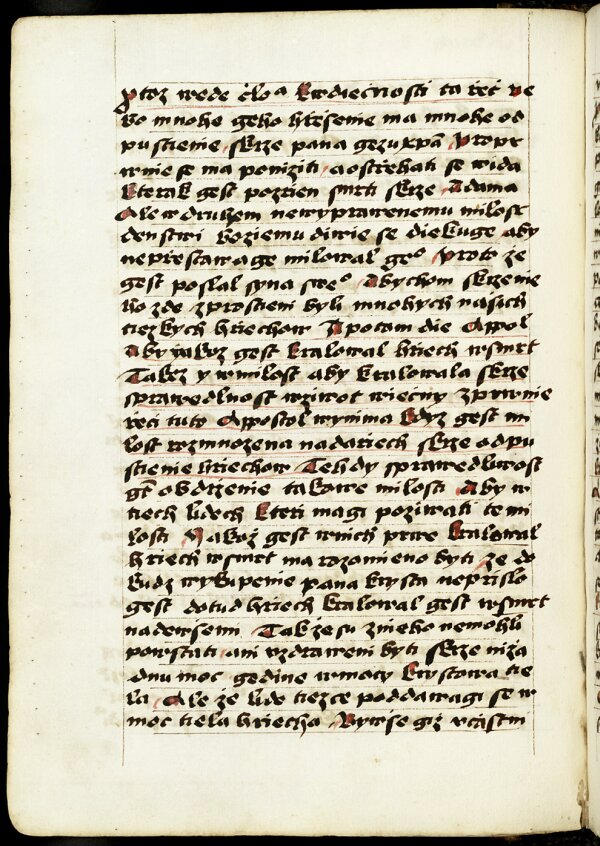 Protoz wede cloᵃ kwdiecnosti ta rec ne
bo mnohe geho hrseme ma mnohe od
pustienie skrze pana gezukpā Prope
wnie se ma poniziti a ostrhati se wida
kterak gest pozrien smrti skrze Adama
Ale w druhem newyprawenemu milosr
denstwi boziemu diwie se diekuge aby
neprestawage milowal geᵒ Proto ze
gest poslal syna sweᵒ Abychom skrze nie
ho zde zprostieni byli mnohych nasich
tiezkych hriechow A potom die Appol
Aby yakoz gest kralowal hriech w smrt
Takez y w milost aby kralowala skrze
sprawedlnost w ziwot wiecny z prwnie
reci tuto Appostol wynima kdyz gest mi
lost rozmnozena na dariech skrze odpu
stienie hriechow Tehdy sprawedlwost
gt obdrzenie takowe milosti Aby w
tiech lidech kteri magi poziwati te mi
losti Yakoz gest w nich prwe kralowal
hriech w smrt ma rozomieno byti ze do
kudz wykupenie pana krysta neprislo
gest dotud hriech kralowal gest w smrt
nade wsemi Tak ze su z nieho nemohli
powstati ani uzdraweni byti skrze niza
dnu moc gedine w mocy krystowa tie
la Ale ze lide tiezce poddawagi se w
moc tiela hriecha Bywse giz ucastni